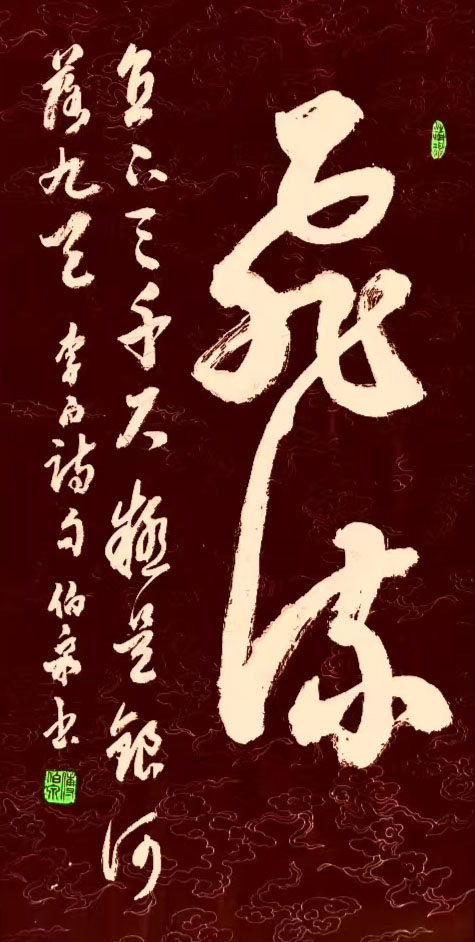 飛流
直下三千尺疑是銀河
落九天 李白詩句 伯泉書